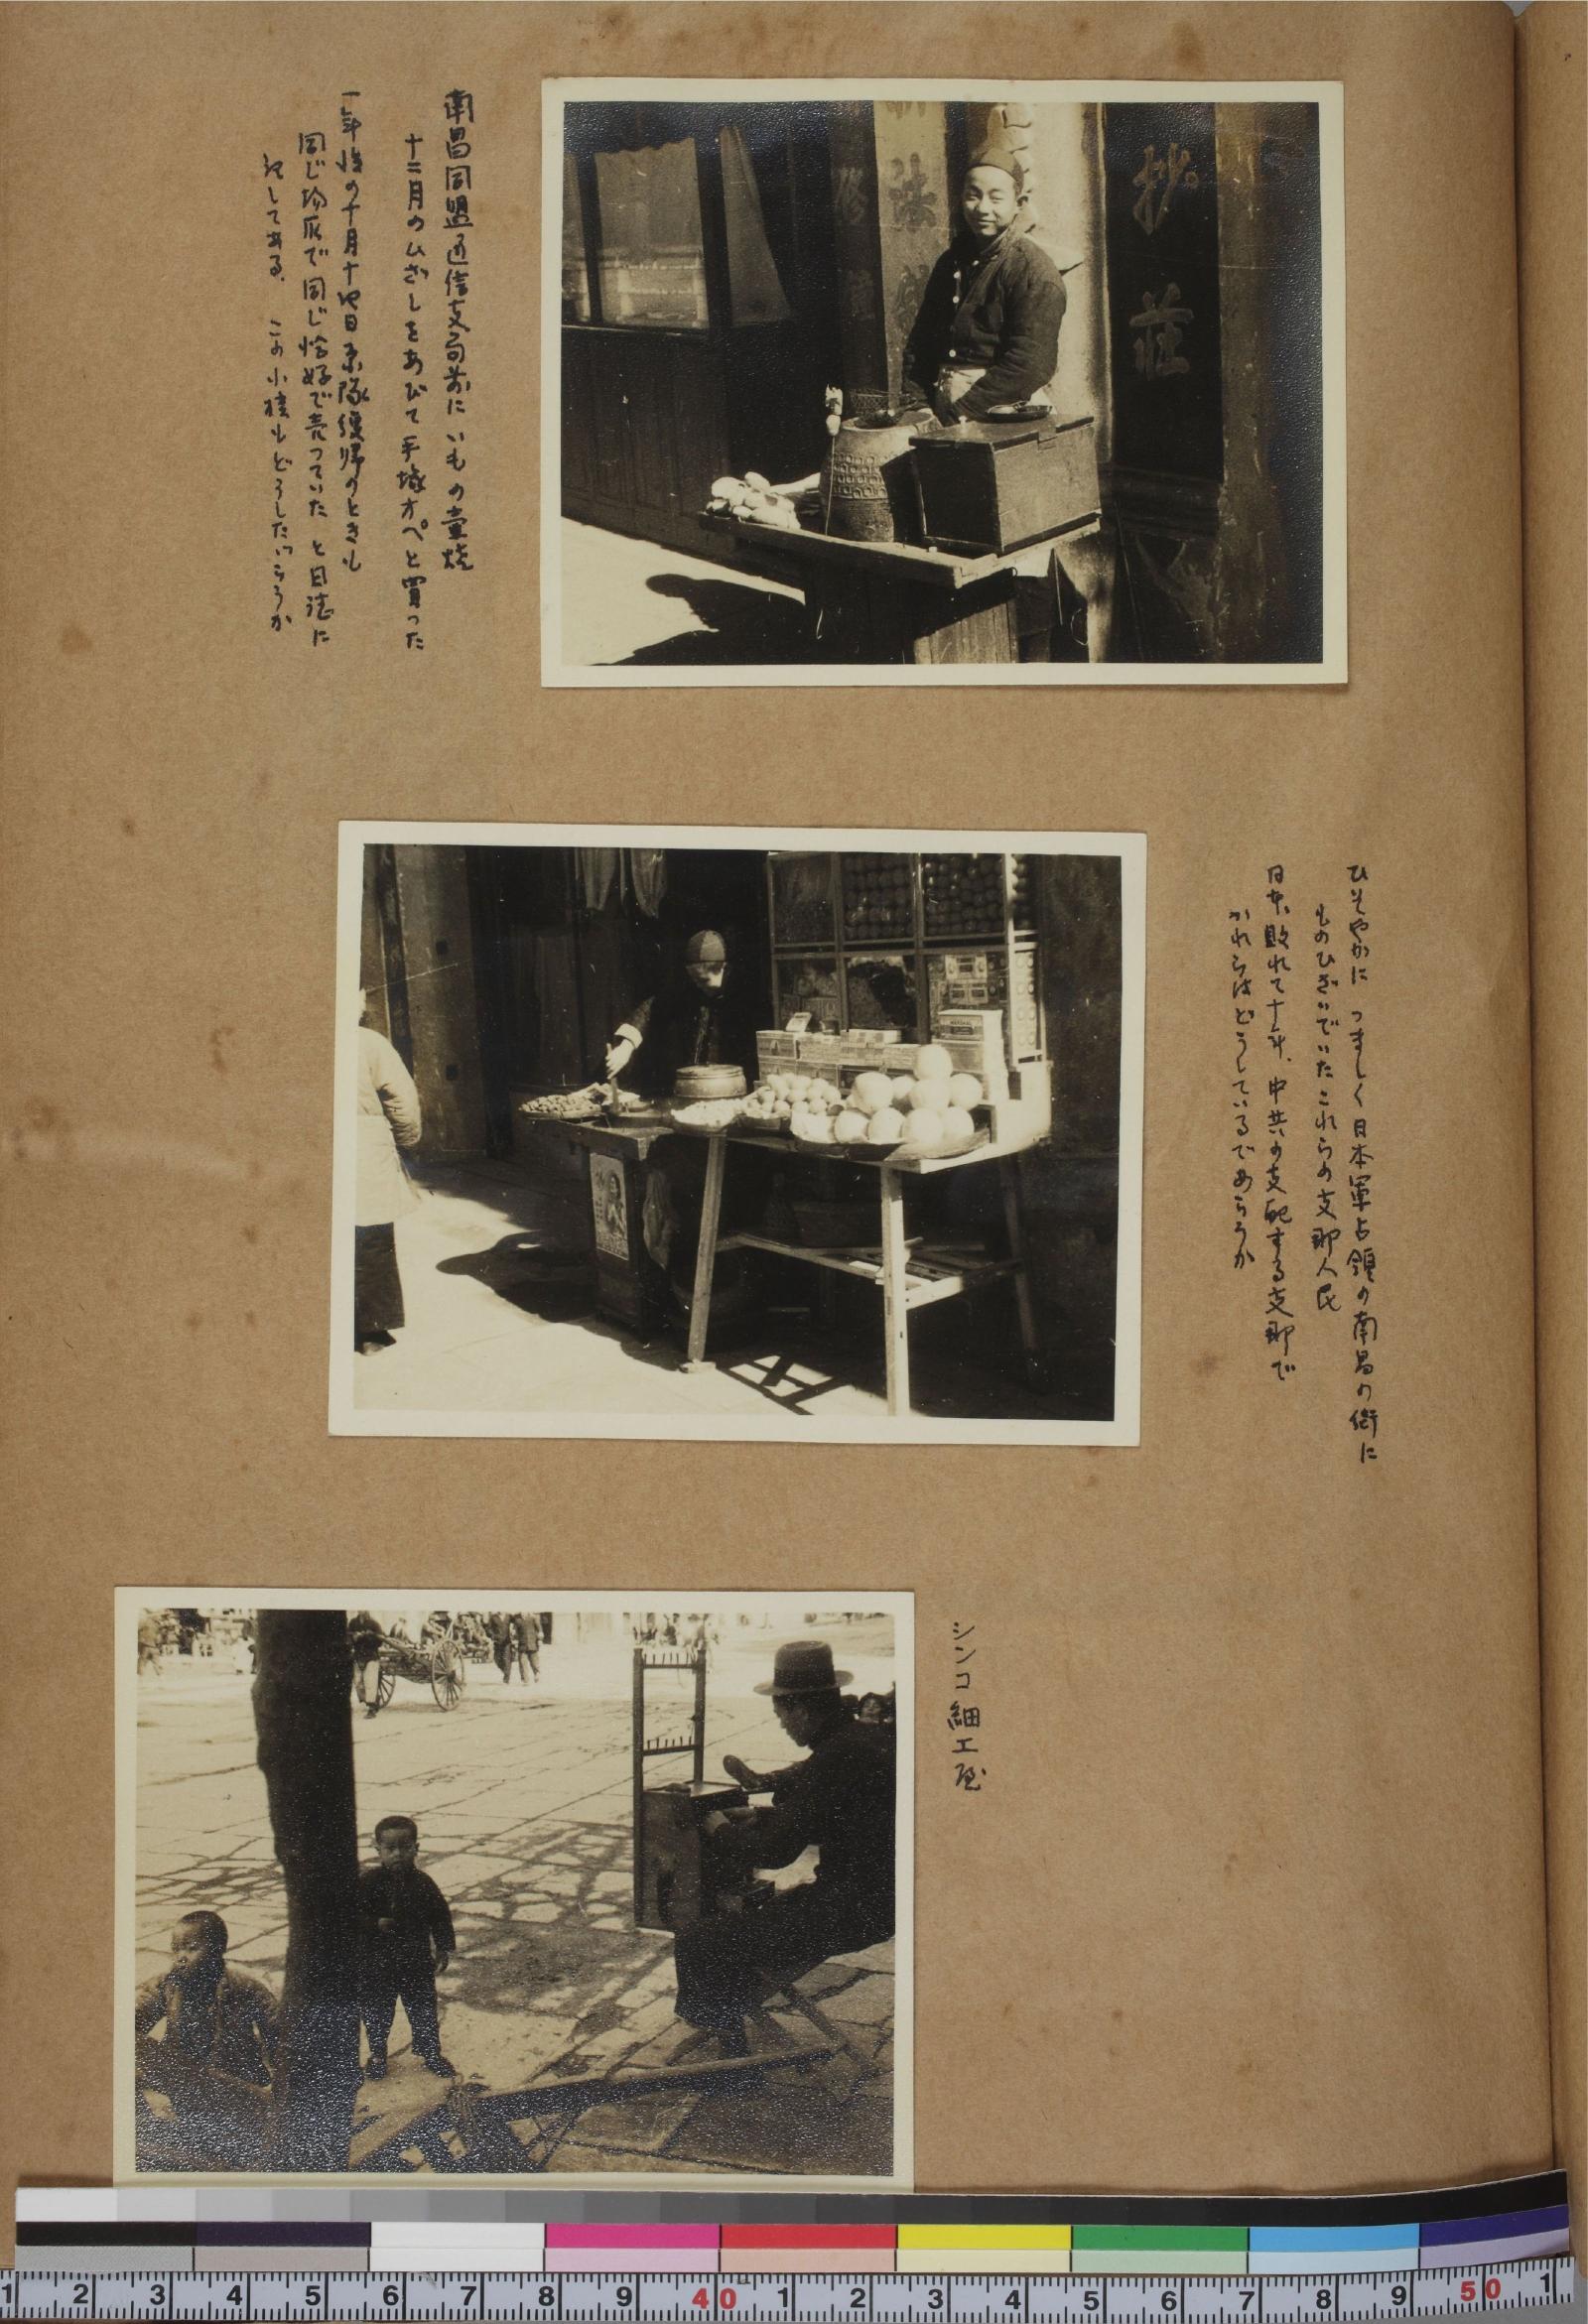 南昌同盟通信支局前に いもの壷焼
十二月のひざしをあびて 手城オペと買った
一年後の十月十四日 原隊復帰のときも
同じ場所で 同じ恰好で売っていた と日誌に
記してある. この小孩もどうしたでろうか
ひそやかに つましく 日本軍占領の南昌の街に
ものひさいでいた これらの支那人民
日本、敗れて十年、中共の支配する支那で
かれらはどうしているであろうか
シンコ細工屋
抄莊
1 2 3 4 5 6 7 8 9 40 1 2 3 4 5 6 7 8 9 50 1